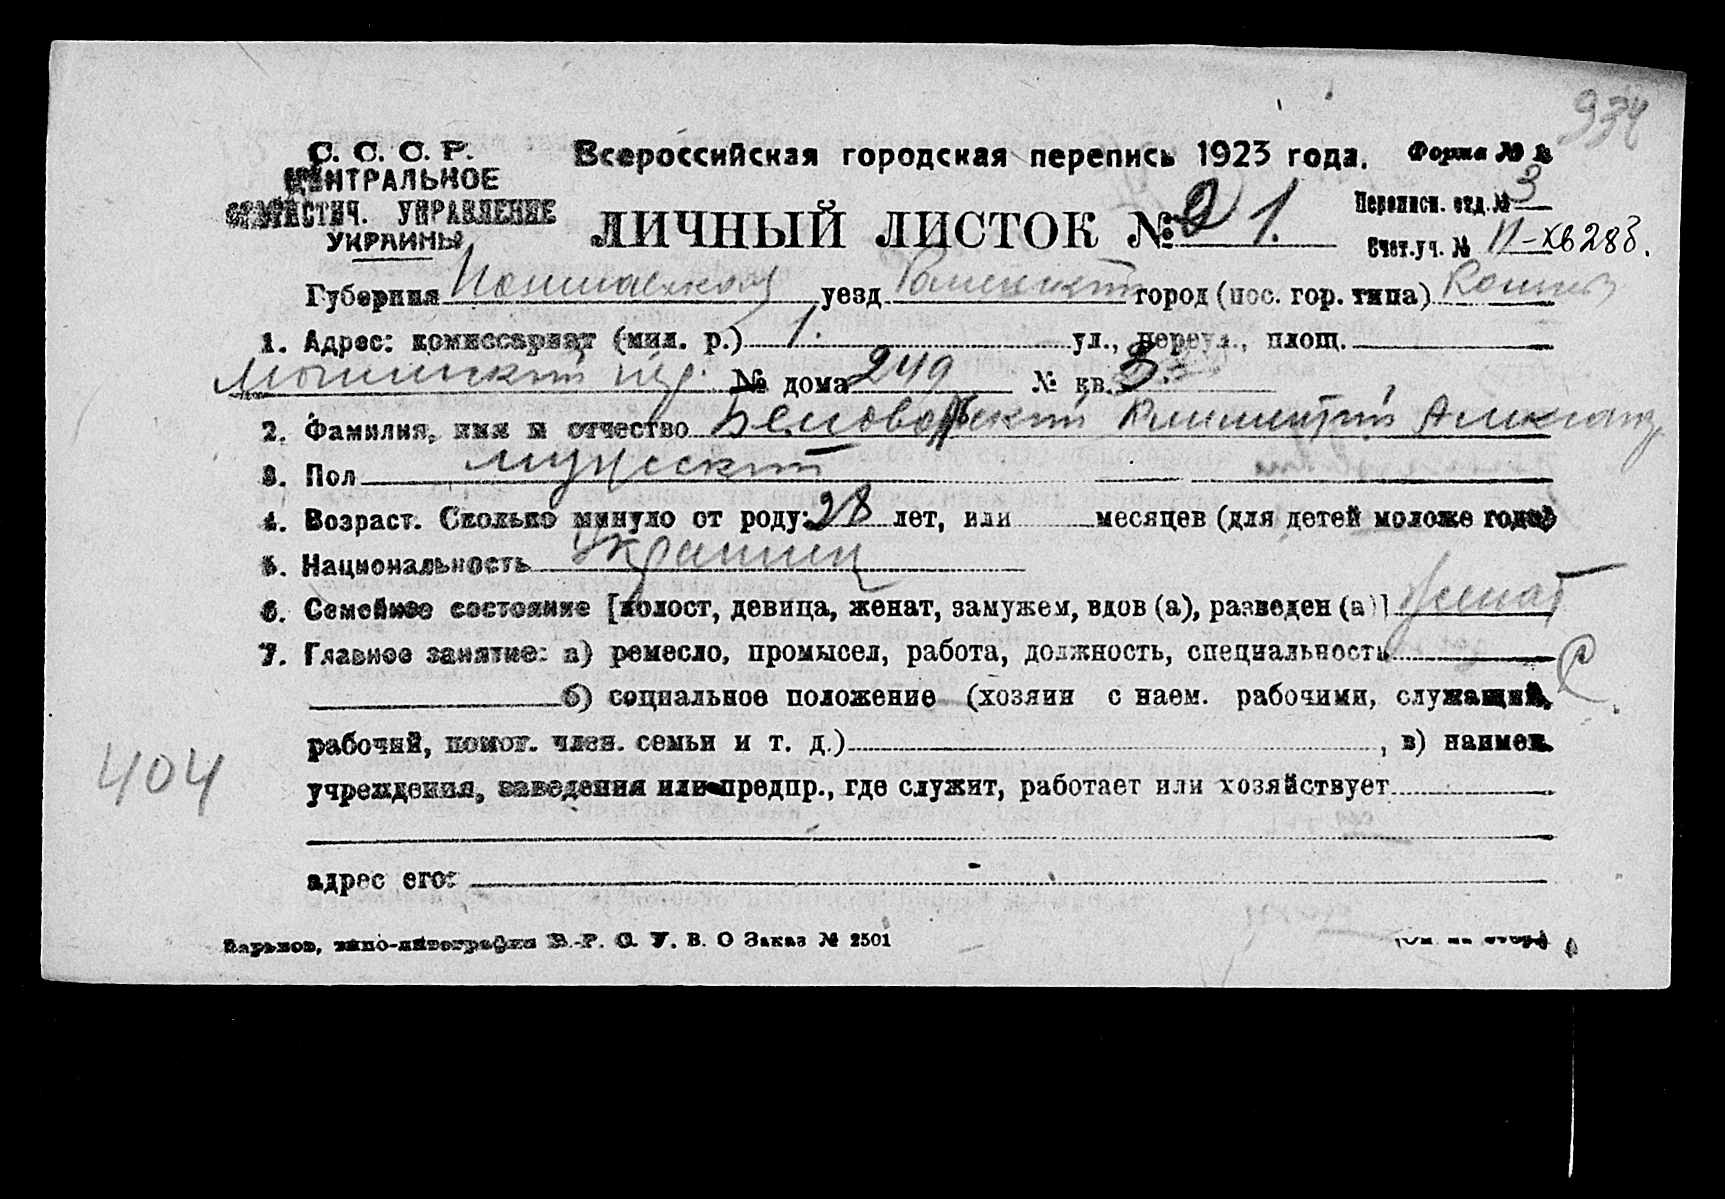 934
С. С. С. Р. Всероссийская городская перепись 1923 года. Форма №
ЦЕНТРАЛЬНОЕ
СТАТИСТИЧ. УПРАВЛЕНИЕ Переписн. отд. № 3
УКРАИНЫ ЛИЧНЫЙ ЛИСТОК № 21. Счет.уч. №
Губерния Полтавская уезд Роменский город (пос. гор. типа) Ромны
1. Адрес: комиссариат (мил. р.) 1. ул., переул., площ.
пер. № дома 249 № кв. 3.
2. Фамилия, имя и отчество Беловодский Александ
3. Пол мужский
4. Возраст. Сколько минуло от роду: 28 лет, или месяцев (для детей моложе года)
5. Национальность Украинец
6. Семейное состояние [холост, девица, женат, замужем, вдов (а), разведен (а)] женат
7. Главное занятие: а) ремесло, промысел, работа, должность, специальность
б) социальное положение (хозяин с наем. рабочими, служащий,
рабочий, помог. член. семьи и т. д.) , в) наимен.
404
учреждения, заведения или предпр., где служит, работает или хозяйствует
адрес его:
Харьков, типо-литография В.-Р. С. У. В. О Заказ № 2501